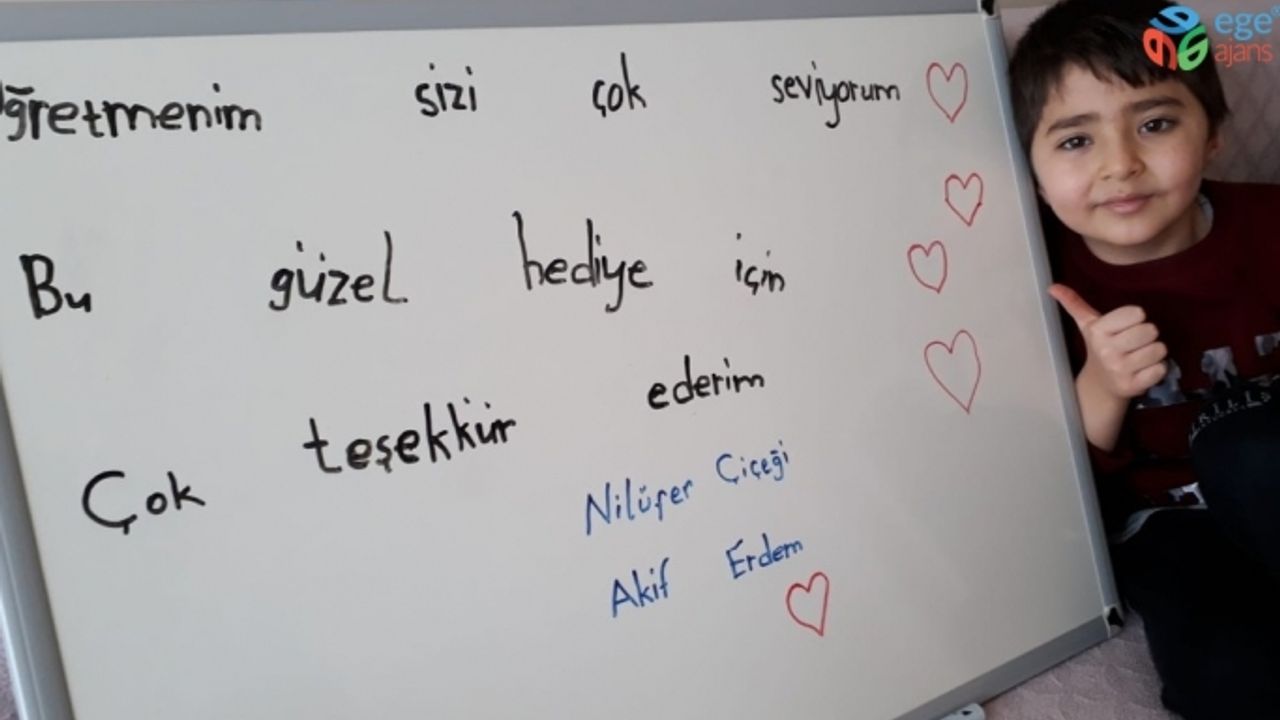 ğretmenim sizi çok seviyorum
Bu güzel hediye için
Çok teşekkür ederim
Nilüfer Çiçeği
Akif Erdem
ege
ajans